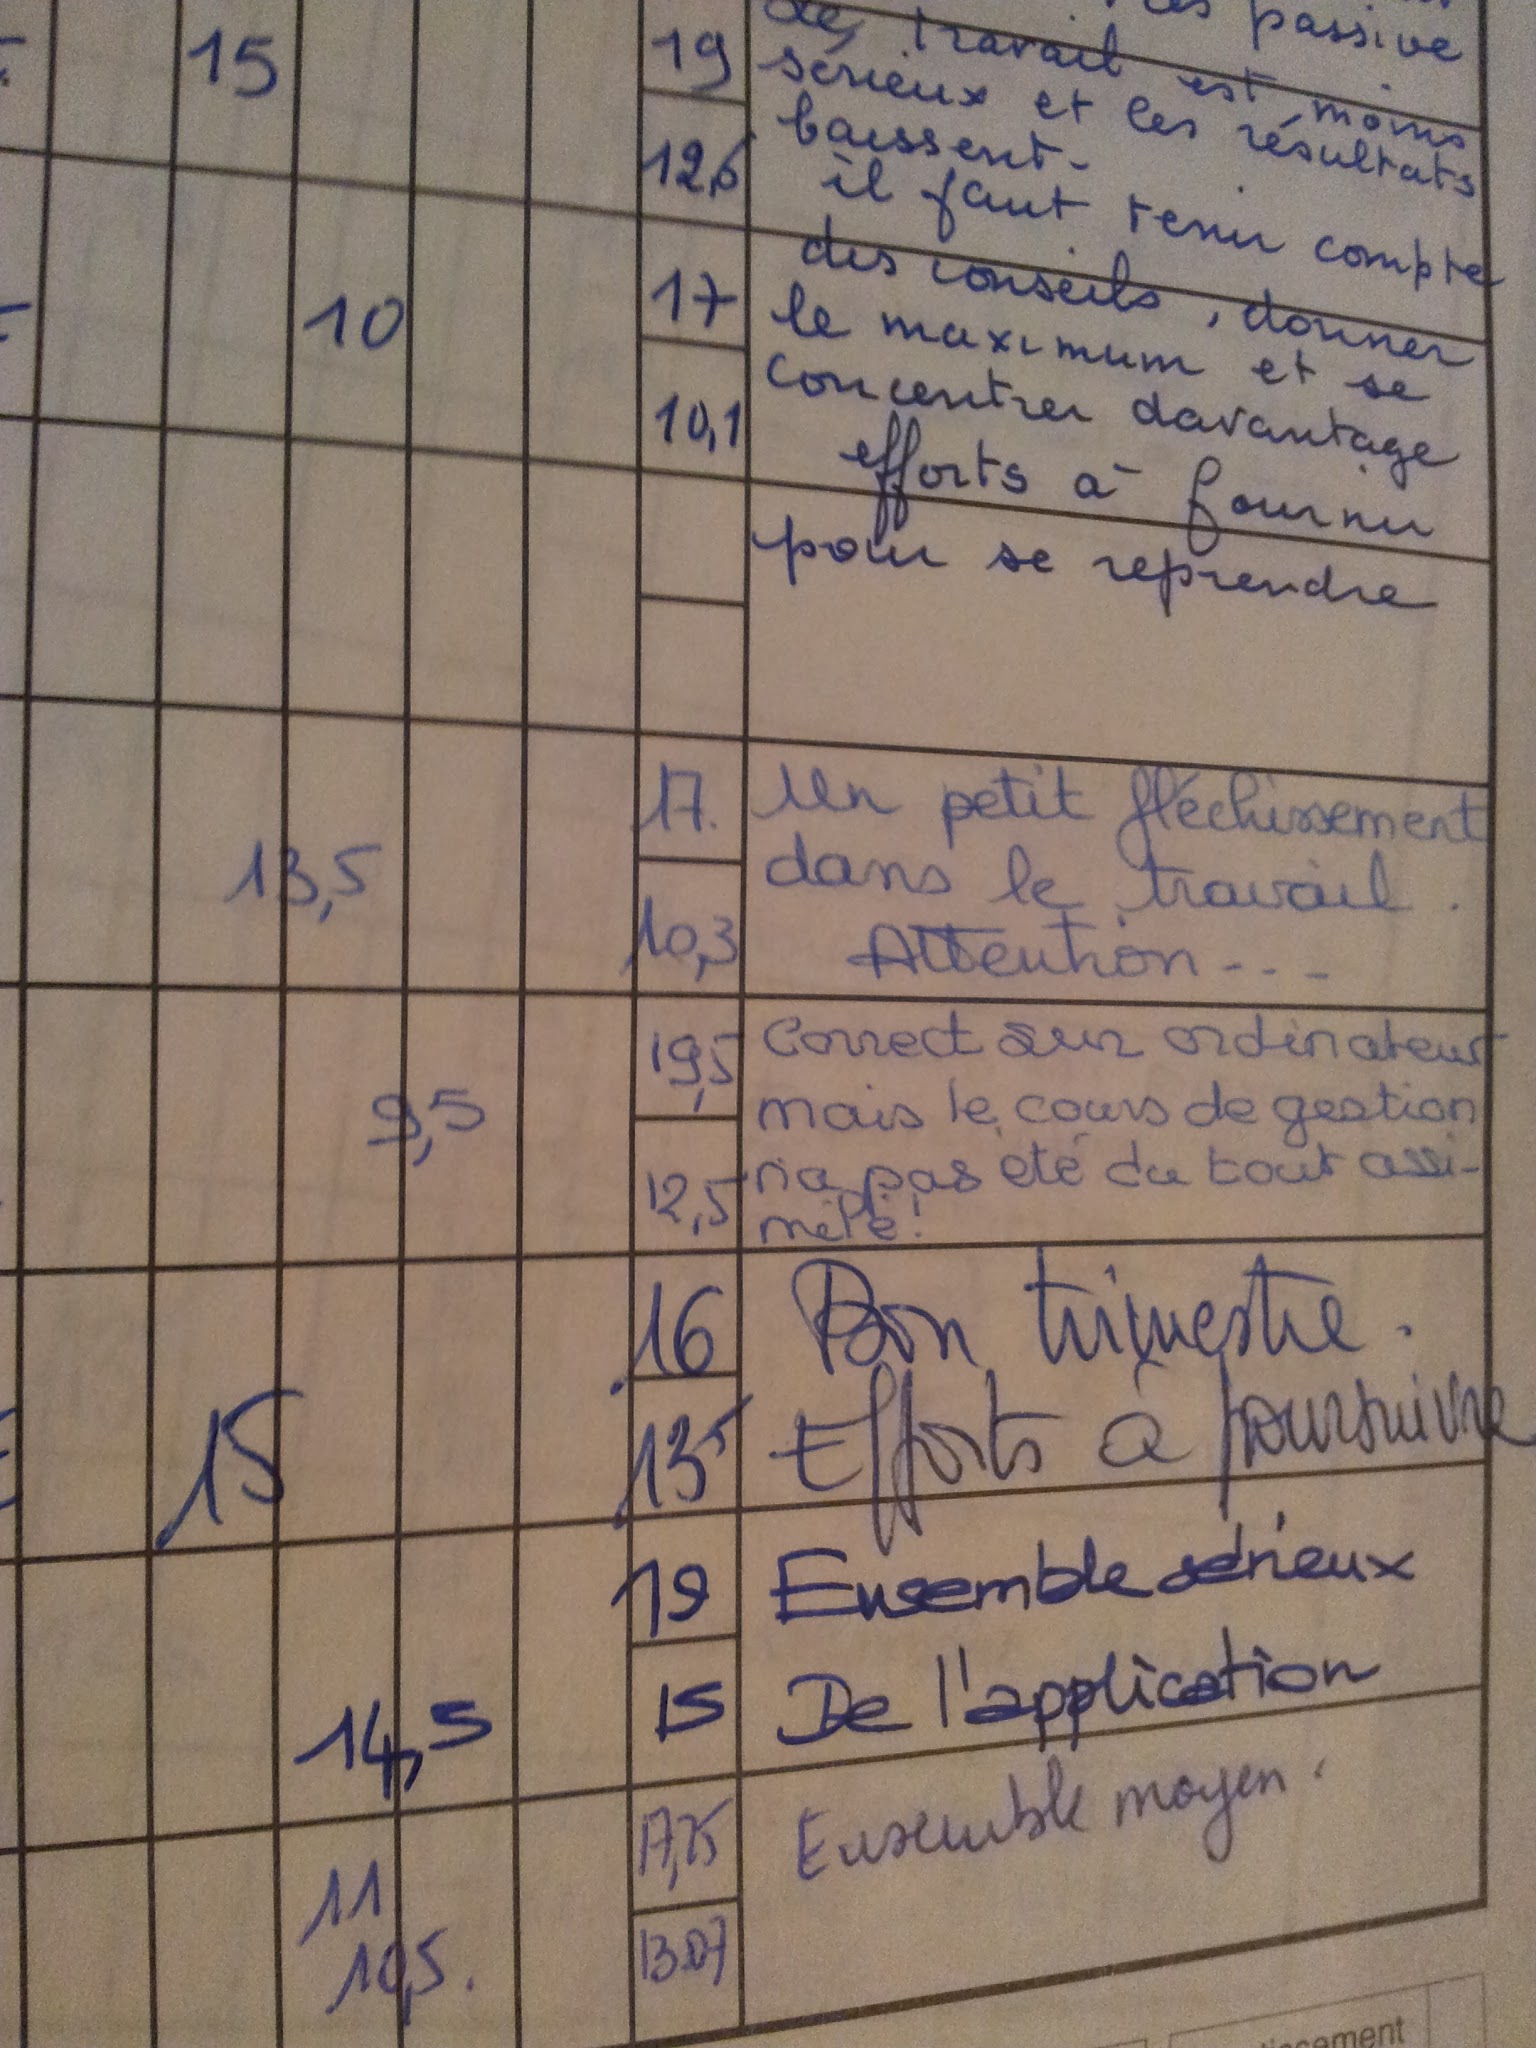 passive
15 19 travail est moins
sérieux et les résultats
12,6 baissent.
il faut tenir compte
des conseils, donner
10 17 le maximum et se
10,1 concentrer davantage
efforts à fournir
pour se reprendre
17. Un petit fléchissement
13,5 dans le travail.
10,3 Attention...
19,5 Correct sur ordinateur
9,5 mais le cours de gestion
12,5 n'a pas été du tout assi-
milé!
16 Bon trimestre.
15 13 Efforts à poursuivre
19 Ensemble sérieux
14,5 15 De l'application
17,25 Ensemble moyen.
11
10,5. 13.07